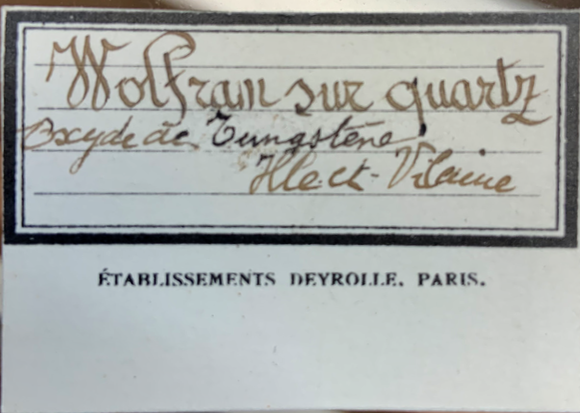 Wolfran sur quartz
Oxyde de Tungstène
Ille et-Vilaine
ÉTABLISSEMENTS DEYROLLE. PARIS.